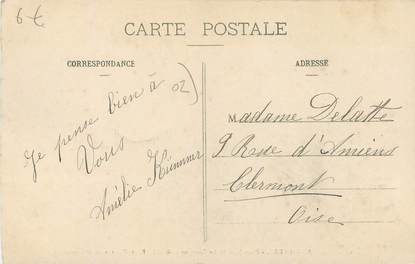 6€
CARTE POSTALE
CORRESPONDANCE
ADRESSE
Je pense bien à
Vous
Amélie
02)
Madame Delatte
9 Rue d'Amiens
Clermont
Oise